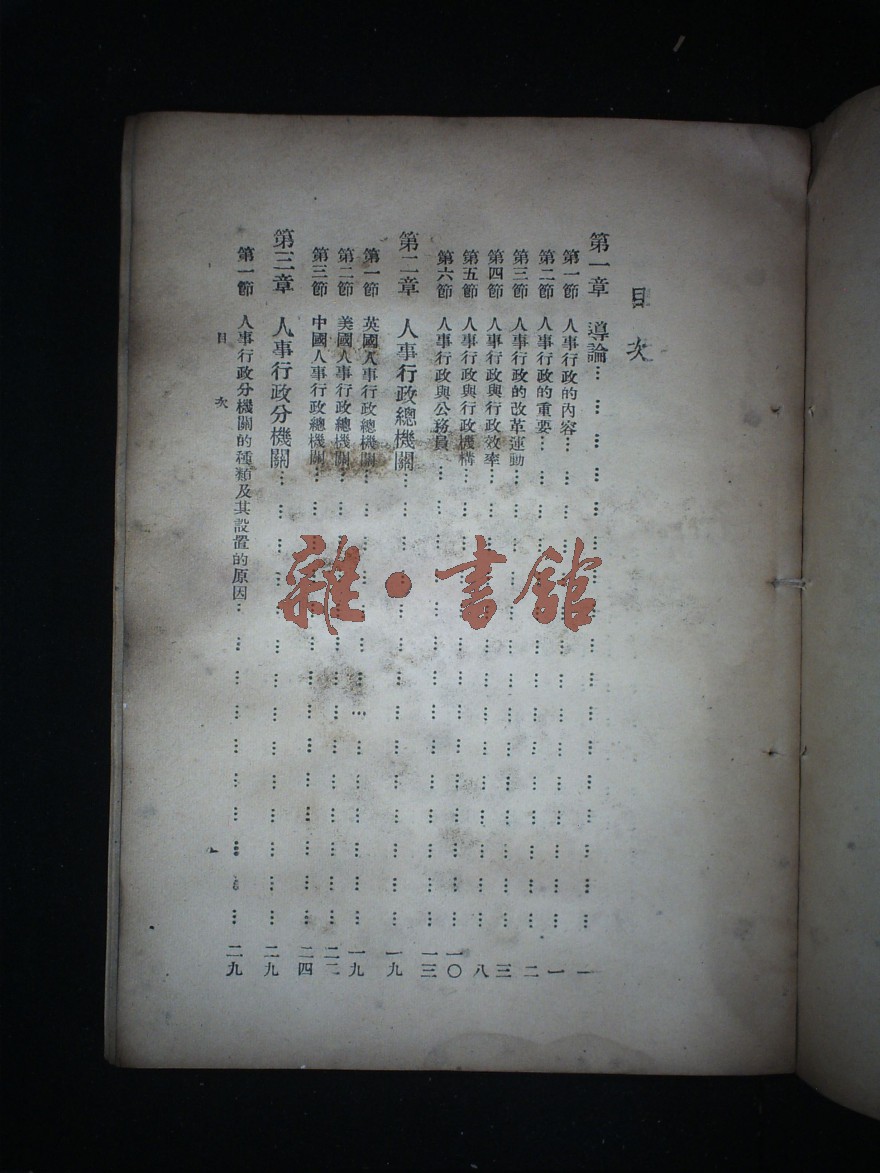 目次
第一章 導論………………………………………一
第一節 人事行政的內容………………………………………一
第二節 人事行政的重要………………………………………二
第三節 人事行政的改革運動………………………………………三
第四節 人事行政與行政效率………………………………………八
第五節 人事行政與行政機構………………………………………一〇
第六節 人事行政與公務員………………………………………一三
第二章 人事行政總機關………………………………………一九
第一節 英國人事行政總機關………………………………………一九
第二節 美國人事行政總機關………………………………………二二
第三節 中國人事行政總機關………………………………………二四
第三章 人事行政分機關………………………………………二九
第一節 人事行政分機關的種類及其設置的原因………………………………………二九
目次
一
雜·書館